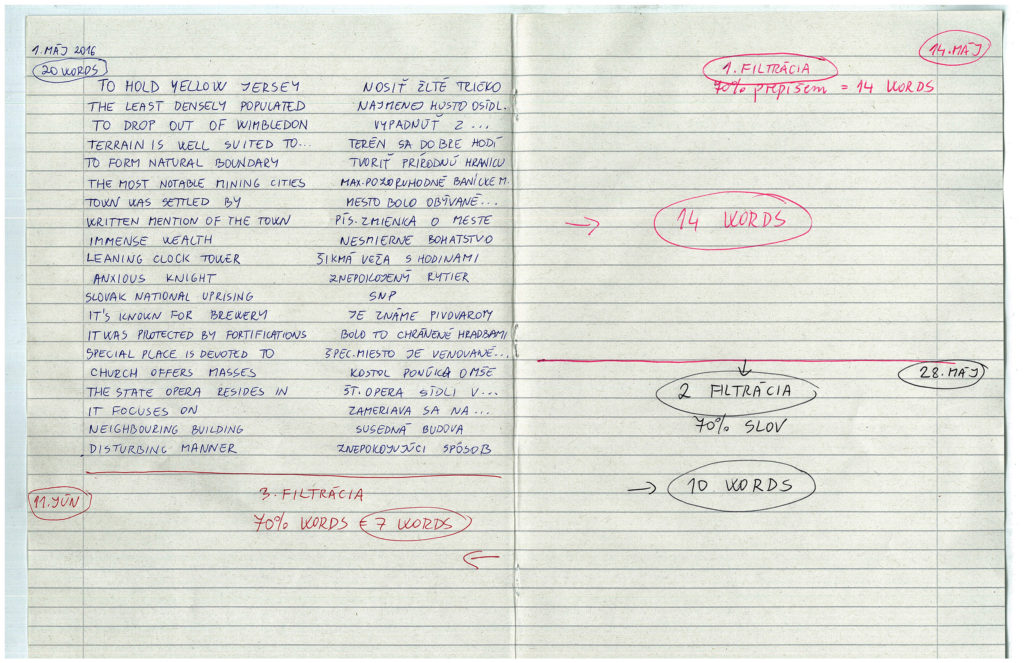 1. MÁJ 2016
20 WORDS
TO HOLD YELLOW JERSEY NOSIŤ ŽLTÉ TRIČKO
THE LEAST DENSELY POPULATED NAJMENEJ HUSTO OSÍDL.
TO DROP OUT OF WIMBLEDON VYPADNÚŤ Z ...
TERRAIN IS WELL SUITED TO... TERÉN SA DOBRE HODÍ
TO FORM NATURAL BOUNDARY TVORIŤ PRÍRODNÚ HRANICU
THE MOST NOTABLE MINING CITIES MAX. POZORUHODNÉ BANÍCKE M.
TOWN WAS SETTLED BY MESTO BOLO OBÝVANÉ...
WRITTEN MENTION OF THE TOWN PÍS. ZMIENKA O MESTE
IMMENSE WEALTH NESMIERNE BOHATSTVO
LEANING CLOCK TOWER ŠIKMÁ VEŽA S HODINAMI
ANXIOUS KNIGHT ZNEPOKOJENÝ RYTIER
SLOVAK NATIONAL UPRISING SNP
IT'S KNOWN FOR BREWERY JE ZNÁME PIVOVAROM
IT WAS PROTECTED BY FORTIFICATIONS BOLO TO CHRÁNENÉ HRADBAMI
SPECIAL PLACE IS DEVOTED TO ŠPEC. MIESTO JE VENOVANÉ...
CHURCH OFFERS MASSES KOSTOL PONÚKA OMŠE
THE STATE OPERA RESIDES IN ŠT. OPERA SÍDLI V...
IT FOCUSES ON ZAMERIAVA SA NA ...
NEIGHBOURING BUILDING SUSEDNÁ BUDOVA
DISTURBING MANNER ZNEPOKOJUJÚCI SPÔSOB
11. JÚN
3. FILTRÁCIA
70% WORDS = 7 WORDS
14. MÁJ
1. FILTRÁCIA
70% prepíšem = 14 WORDS
14 WORDS
28. MÁJ
2 FILTRÁCIA
70% SLOV
10 WORDS